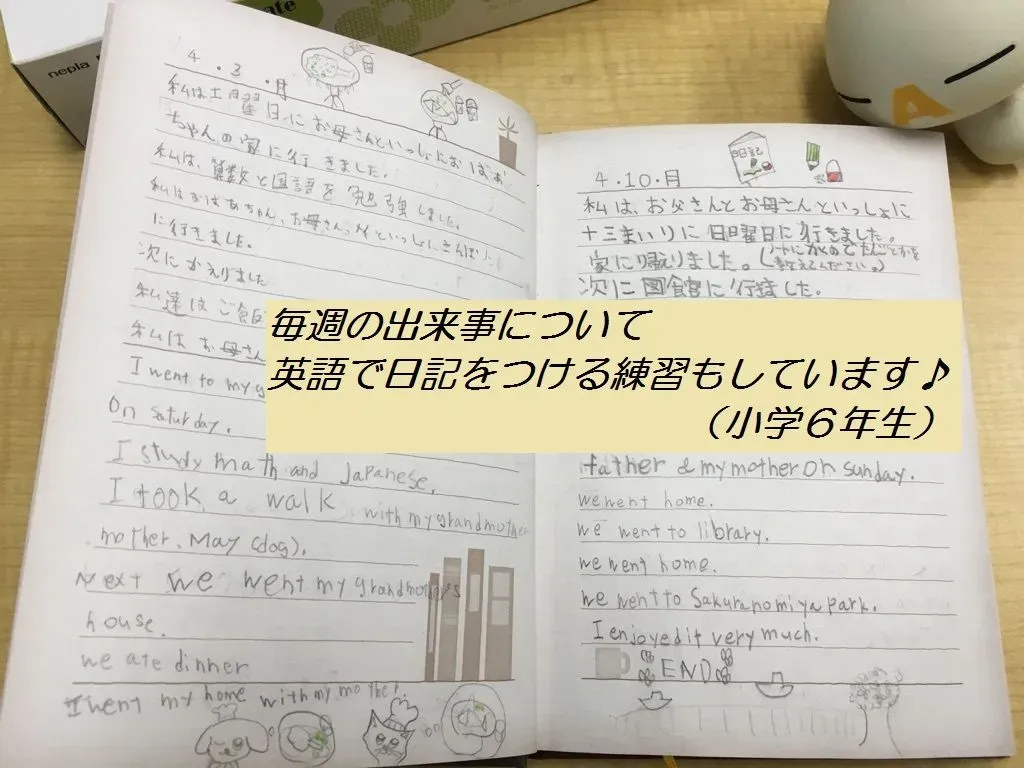 nepia
4・3・月
私は土曜日にお母さんといっしょにおばあ
ちゃんの家に行きました。
私は、算数と国語を勉強しました。
私はおばあちゃん、お母さん、メイといっしょにさんぽ
に行きました。
次にかえりました
私達はご飯
私はお母さん
I went to my g
On saturday.
I study math and Japanese.
I took a walk with my grandmother
mother. May (dog).
Next we went my grandmother's
house.
we ate dinner
I went my home with my mother.
日記
4・10・月
私は、お父さんとお母さんといっしょに
十三まいりに日曜日に行きました。
家に帰りました。
教えてください。)
次に図館に行きました。
毎週の出来事について
英語で日記をつける練習もしています♪
(小学6年生)
father & my mother on sunday.
we went home.
we went to library.
we went home.
we went to Sakuranomiya park.
I enjoyed it very much.
END